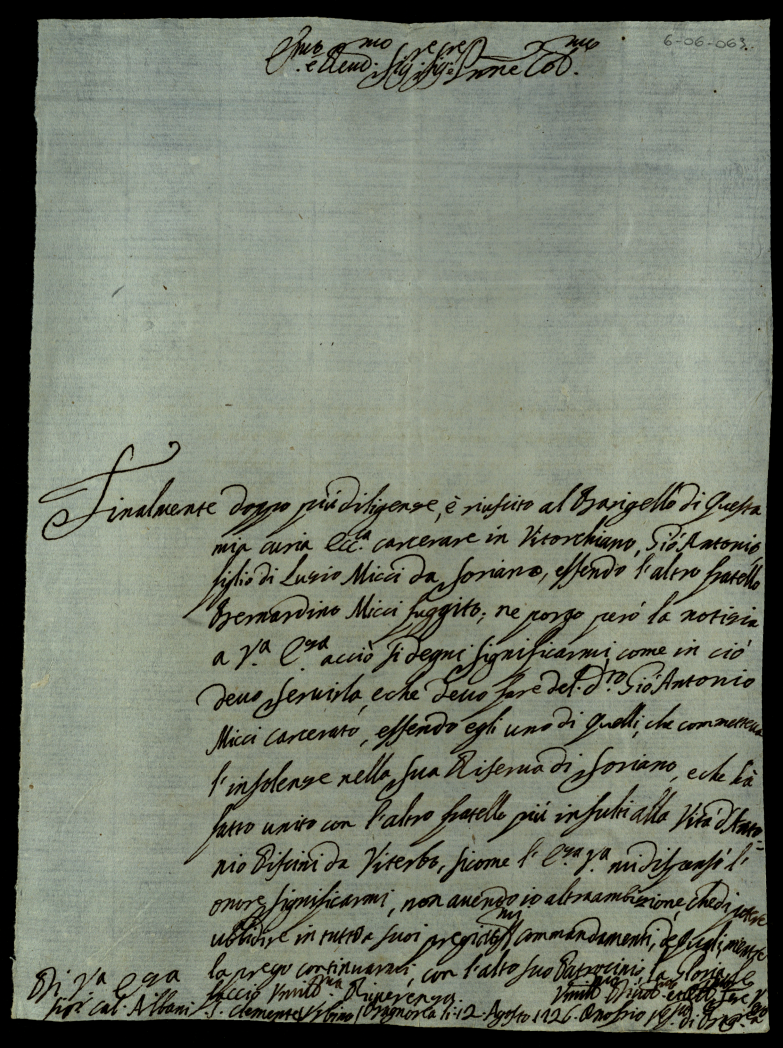 6-06-063.
Em.mo e Reud.mo Sig.re Sig.re Pnne Col.mo
Finalmente doppo più diligenze, è riuscito al Barigello di questa
mia curia Ecc.a carcerare in Vitorchiano, Gio Antonio
figlio di Luzio Micci da Soriano, essendo l'altro fratello
Bernardino Micci fuggito; ne porgo però la notizia
a V.a E.nza acciò si degni significarmi, come in ciò
devo servirla, e che devo fare del d.to Gio Antonio
Micci carcerato, essendo egli uno di quelli, che commetteva
l'insolenze nella sua Riserva di Soriano, e che hà
fatto unito con l'altro fratello più insulti alla Vita d'Anto=
nio Piscini da Viterbo, sicome l'E.nza V.a mi dispensò l'
onore significarmi, non avendo io altra ambizione, che di potere
ubbidire in tutto a suoi pregiat.mi commandamenti, e
la prego continuarmi, con l'alto suo Patrocinio, la Gloria
Di V.a E.nza faccio Umil.ma Riverenza.
Sig.r Car. Albani S. Clemente Urbino Bagnorea li 12 Agosto 1726.